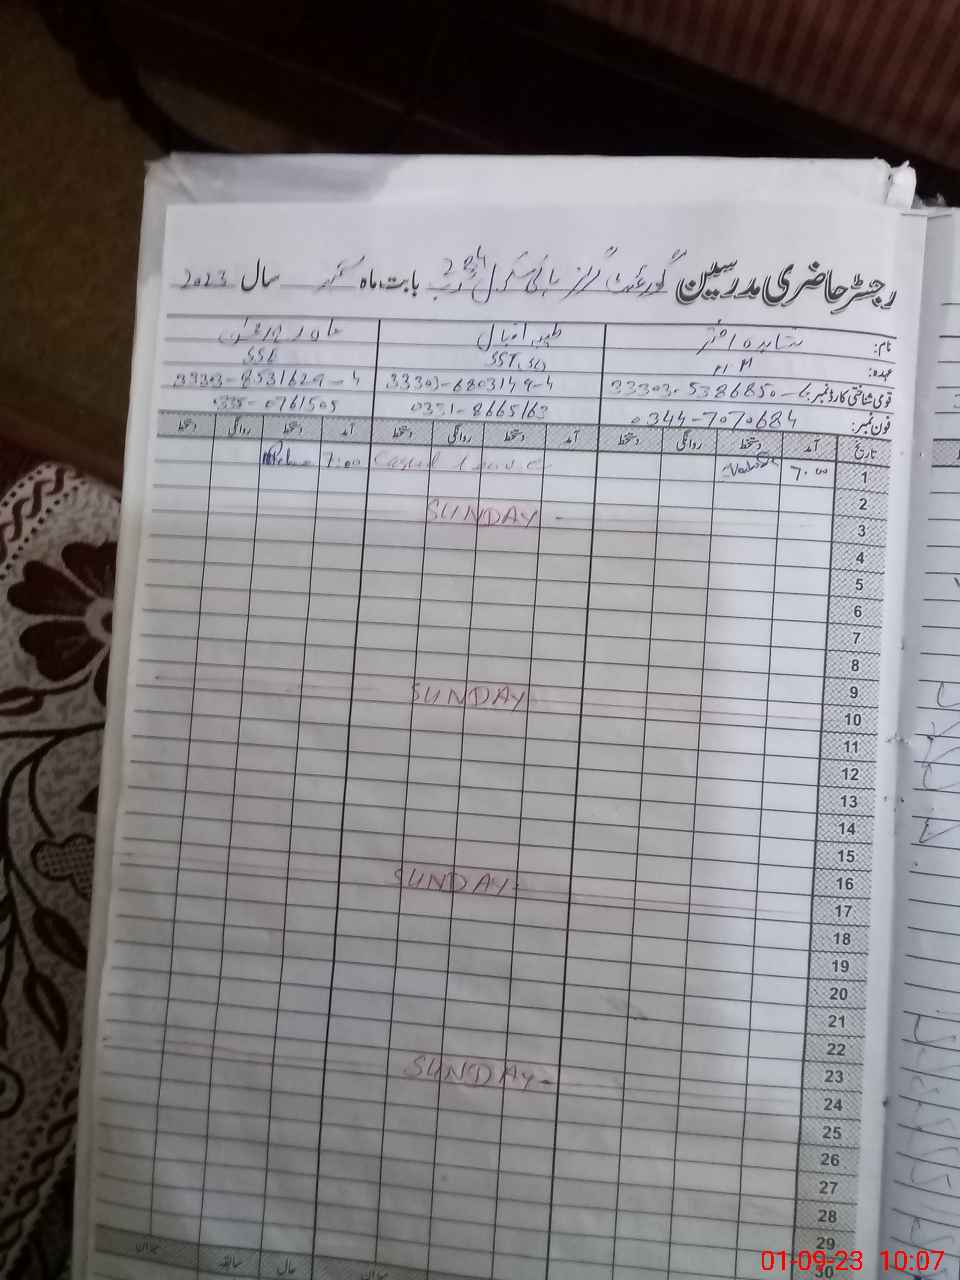 رجسٹر حاضری مدرسین گورنمنٹ گرلز ہائی سکول 284 بابت ماہ ستمبر سال 2023
نام: شاہدہ اختر طیبہ اقبال
عہدہ: SST, Sci SSE
قومی شناختی کارڈ نمبر: 33303-5386850-4 33303-6803149-4 33303-8531629-4
فون نمبر: 0344-7070684 0331-8665163 0335-0761505
تاریخ آمد دستخط روانگی دستخط آمد دستخط روانگی دستخط آمد دستخط روانگی دستخط
1 7:00 Casual Leave 7:00
2
3 SUNDAY
4
5
6
7
8
9
10 SUNDAY
11
12
13
14
15
16
17 SUNDAY
18
19
20
21
22
23
24 SUNDAY
25
26
27
28
29
30
میزان حال سابقہ میزان
01-09-23 10:07